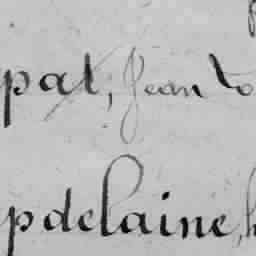 pat, Jean
pdelaine,